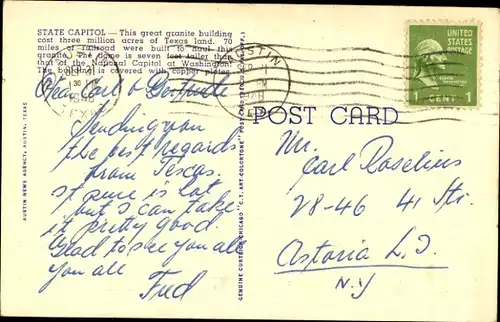 STATE CAPITOL — This great granite building
cost three million acres of Texas land. 70
miles of railroad were built to haul this
granite. The dome is seven feet taller than
that of the National Capitol at Washington.
The building is covered with copper plates.
Dear Carl & Gertrude
Sending you
the best regards
from Texas.
It pure is hot
but I can take
it pretty good.
Glad to see you all
you all
Fred
AUSTIN NEWS AGENCY, AUSTIN, TEXAS
GENUINE CURTEICH-CHICAGO "C.T. ART-COLORTONE" POST CARD
AUSTIN
PM
1948
UNITED STATES
POSTAGE
1 CENT 1
POST CARD
Mr.
Carl Roselius
28-46 41 St.
Astoria L.I.
N.Y